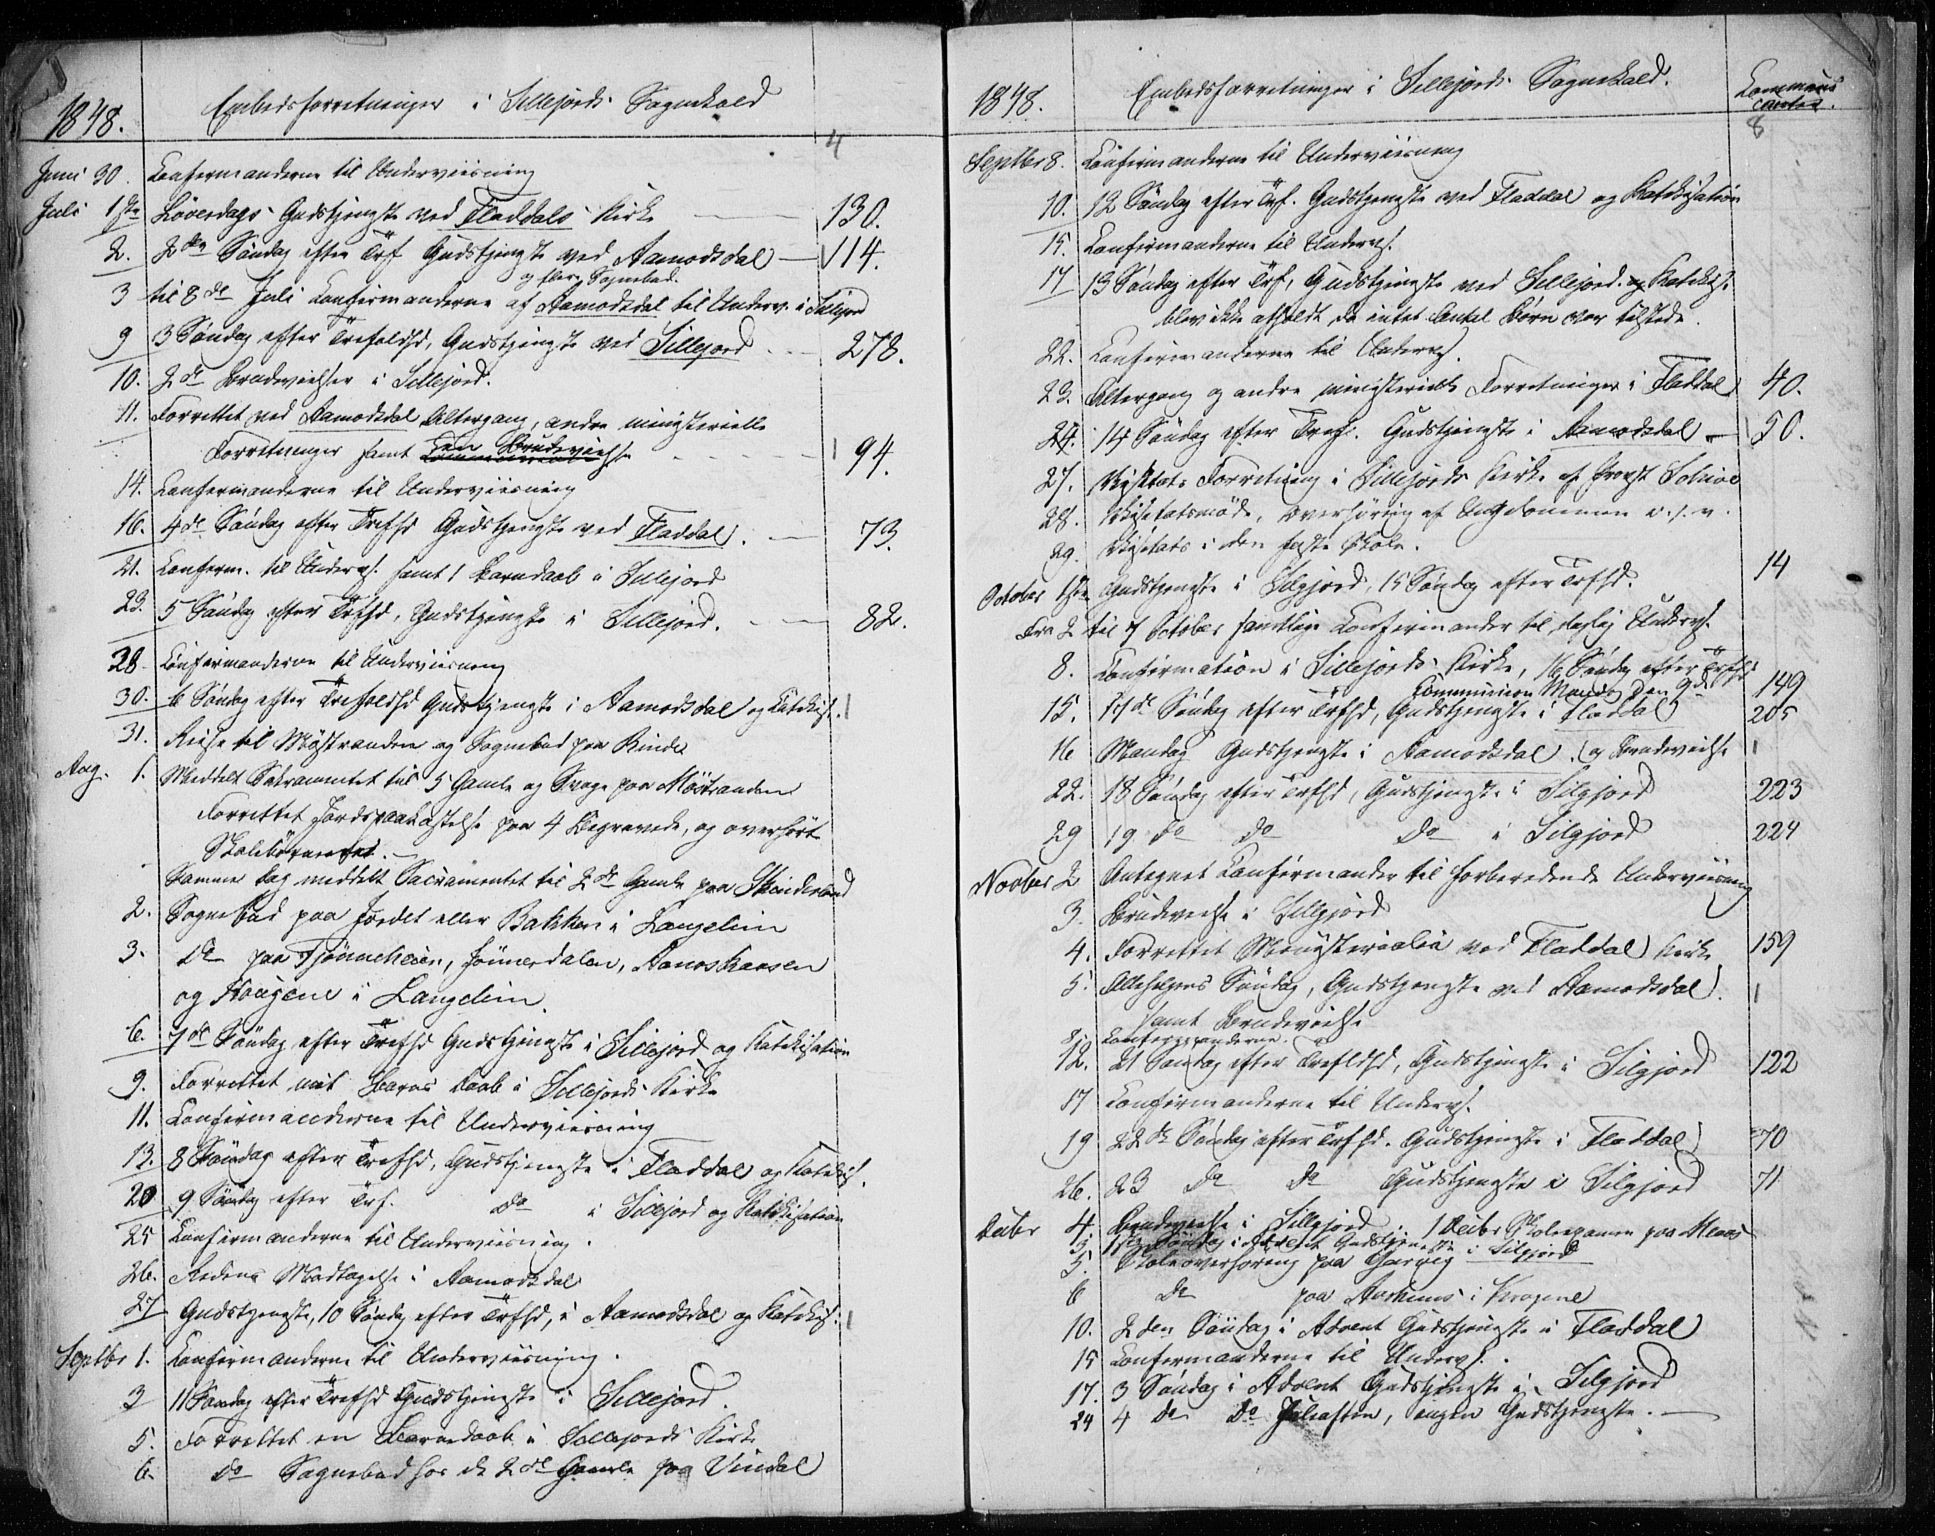 1848. Embedsforretninger i Sillejords Sognekald
4
Juni 30. Confirmanderne til Underviisning
Juli 1ste Löverdags Gudstjeneste ved Fladdals Kirke — 130.
2. 2den Söndag efter Trf Gudstjeneste ved Aamodsdal — 114.
og flere Sognebud.
3 til 8de Juli Confirmanderne af Aamodsdal til Underv. i Sillejord
9 3 Söndag efter Trefoldhd, Gudstjeneste ved Sillejord — 278.
10. 2de Brudevielser i Sillejord.
11. Forrettet ved Aamodsdal Altergang, andre ministerielle
Forretninger samt een Brudevielse — 94.
14. Confirmanderne til Underviisning
16. 4de Söndag efter Trefhd Gudstjeneste ved Fladdal. — 73.
21. Confirm. til Undervs. samt 1 Barndaab i Sillejord
23. 5 Söndag efter Trfhd, Gudstjeneste i Sillejord. — 82.
28. Confirmanderne til Underviisning
30. 6 Söndag efter Trefoldhd Gudstjeneste i Aamodsdal og Katekis.
31. Reise til Möstranden og Sognebud paa Rinde
Aug. 1. Meddelt Sakramentet til 5 Gamle og Svage paa Möstranden
Forrettet Jordspaakastelse paa 4 Begravede, og overhört
Skolebörnene.
Samme Dag meddelt Sacramentet til 2de Gamle paa
2. Sognebud paa Jordet eller Bakken i Langelim
3. Do paa Tjönneheien, Jönnerdalen,
og Haugene i Langelim
6. 7de Söndag efter Trefhd Gudstjeneste i Sillejord og Katekisation
9. Forrettet mit Barns Daab i Sillejords Kirke
11. Confirmanderne til Underviisning
13. 8 Söndag efter Trefhd, Gudstjeneste i Fladdal og Katekis.
20 9 Söndag efter Trf. Do i Sillejord og Katekisation
25 Confirmanderne til Underviisning.
26. Redens Modtagelse i Aamodsdal
27 Gudstjeneste, 10 Söndag efter Trfhd, i Aamodsdal og Katekis.
Septbr 1. Confirmanderne til Underviisning.
3 11 Söndag efter Trefhd Gudstjeneste i Sillejord.
5. Forrettet en Barnedaab i Sillejords Kirke
6. Do Sognebud hos de 2de Gamle paa Vindal
1848. Embedsforretninger i Sillejords Sognekald. Communicantes.
8
Septbr 8. Confirmanderne til Underviisning
10. 12 Söndag efter Trf. Gudstjeneste ved Fladdal og Katekisation
15. Confirmanderne til Undervs.
17 13 Söndag efter Trf, Gudstjeneste ved Sillejord. og Katekis.
blev ikke afholdt, da intet Antal Börn var tilstede.
22. Confirmanderne til Undervs.
23. Altergang og andre ministerielle Forretninger i Fladdal 40.
24. 14 Söndag efter Tref. Gudstjeneste i Aamodsdal — 50.
27. Visitats Forretning i Sillejords Kirke af Provst
28. Visitatsmöde, Overhöring af Ungdommen o.s.v.
29. Visitats i den faste Skole.
October 1ste Gudstjeneste i Silgjord, 15 Söndag efter Trfhd. 14
Fra 2 til 7 October samtlige Confirmander til daglig Undervs.
8. Confirmation i Sillejords Kirke, 16 Söndag efter Trfhd
Communion Mandag den 9de 149
15. 17de Söndag efter Trfhd, Gudstjeneste i Fladdal 205
16 Mandag Gudstjeneste i Aamodsdal. og Brudevielse
22. 18 Söndag efter Trfhd, Gudstjeneste i Silgjord 223
29 19 Do Do Do i Silgjord 224
Novbr 2 Antegnet Confirmander til forberedende Underviisning
3. Brudevielse i Sillgjord
4. Forrettet Ministerialia ved Fladdal Kirke 159
5. Allehelgens Söndag, Gudstjeneste ved Aamodsdal
samt Brudevielse
Confirmanderne.
12. 21 Söndag efter Trefldhd, Gudstjeneste i Silgjord 122
17 Confirmanderne til Undervs.
19 22de Söndag efter Trfhd. Gudstjeneste i Fladdal 70
26. 23 Do Do Gudstjeneste i Silgjord 71
Decbr 4. Brudevielse i Sillejord. 1 Decbr Skoleexamen paa
3. 1ste Söndag i Advent Gudstjeneste i Silgjord
5. Skoleoverhöring paa
6 Do paa
10. 2den Söndag i Advent Gudstjeneste i Fladdal
15 Confirmanderne til Undervs.
17. 3 Söndag i Advent Gudstjeneste i Silgjord
24 4 Do Do Juleaften, ingen Gudstjeneste. —